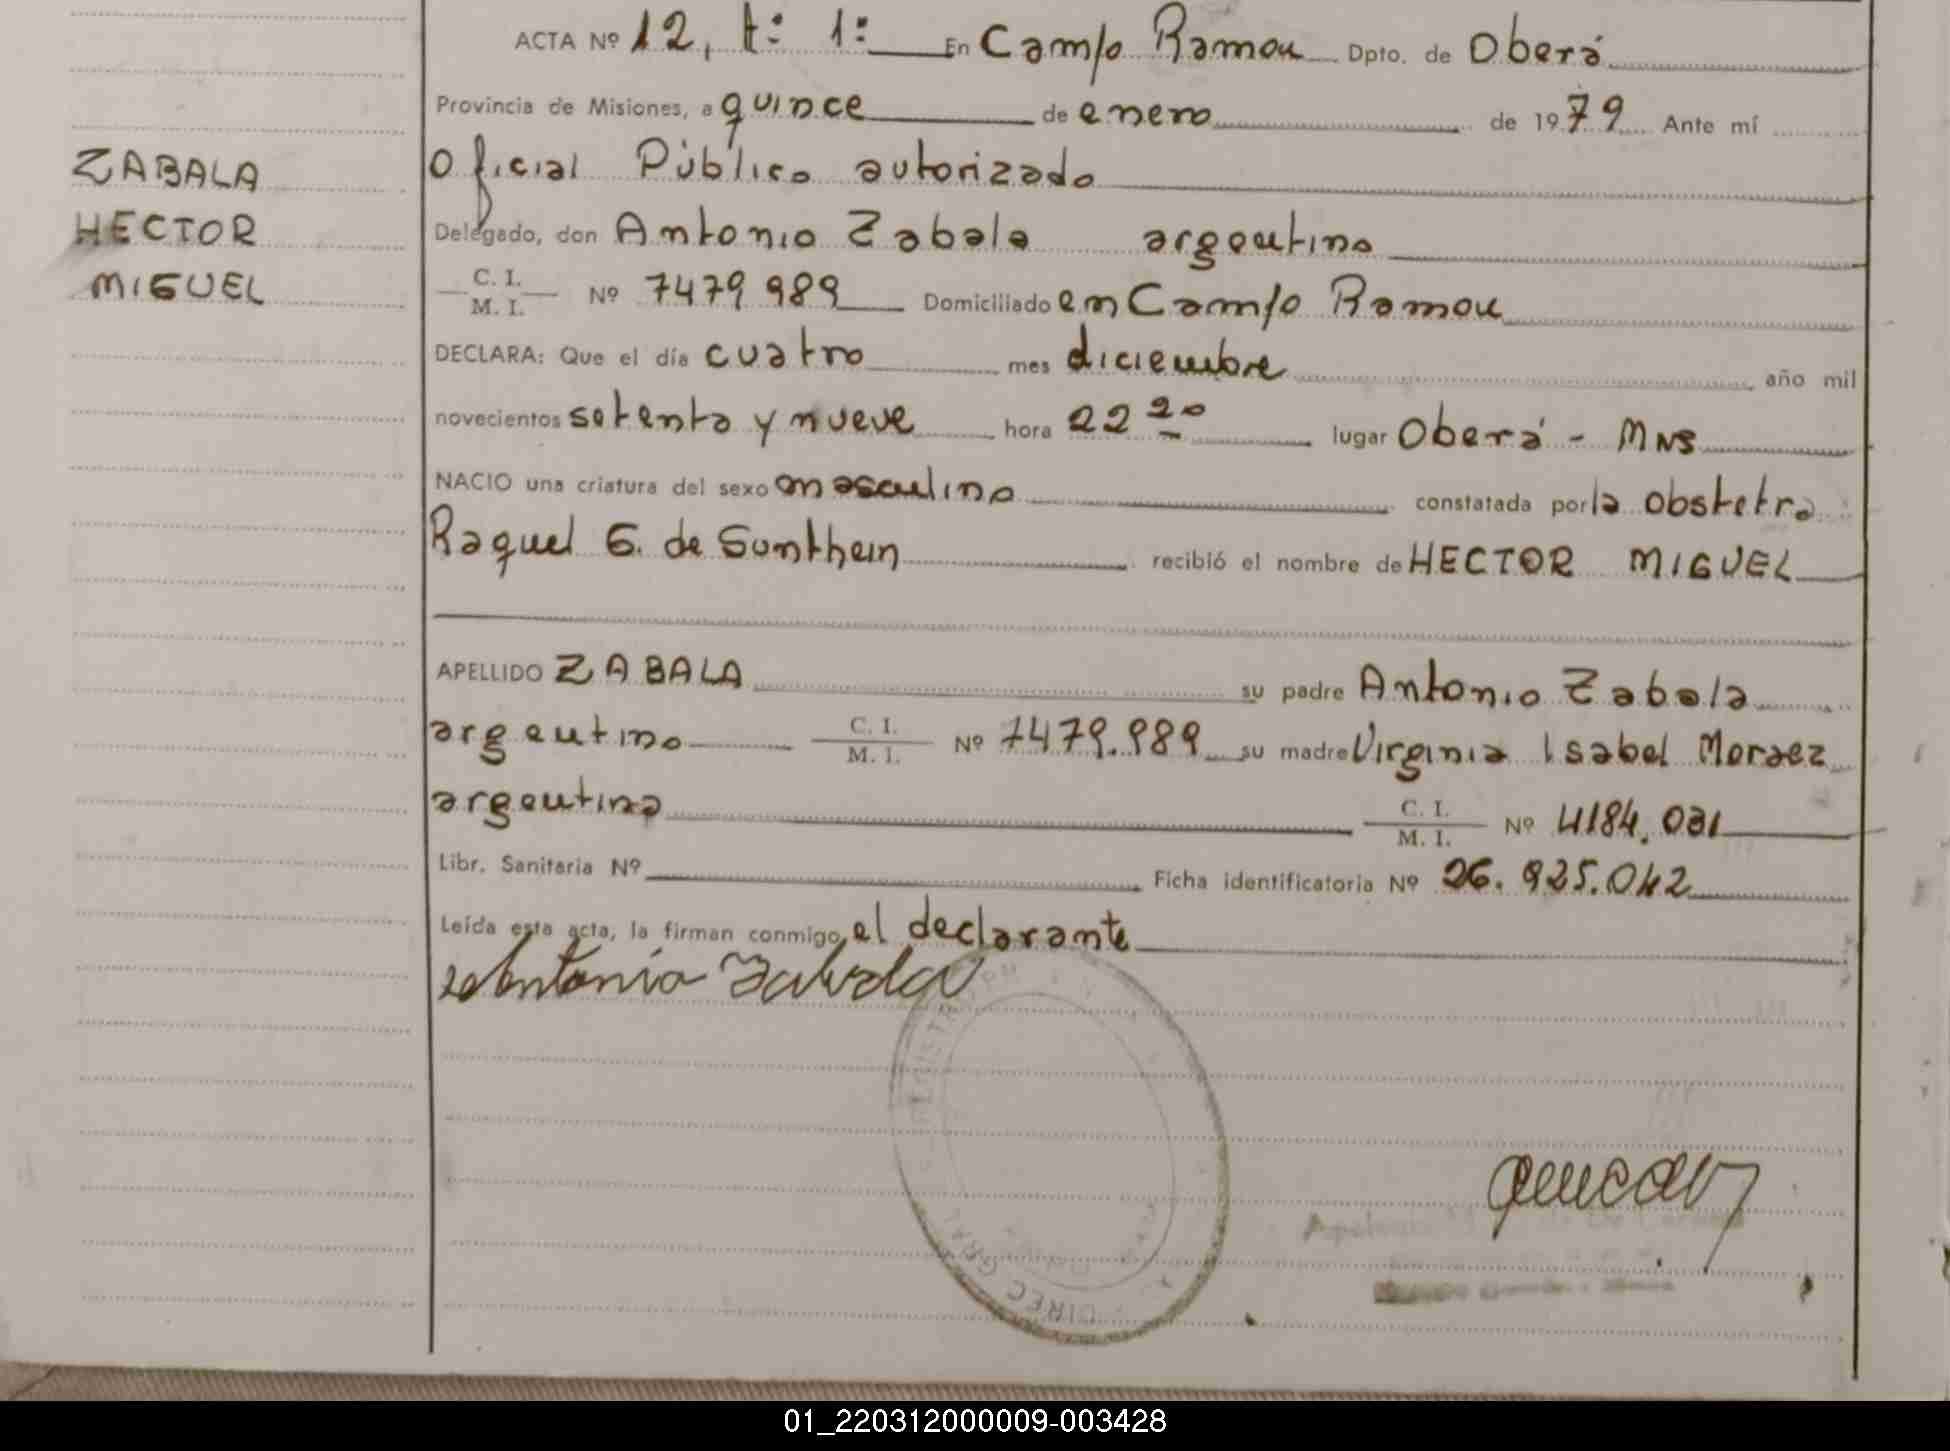 ACTA Nº 12, t: 1: En Campo Ramon Dpto. de Oberá
Provincia de Misiones, a quince de enero de 1979 Ante mí
Oficial Público autorizado
ZABALA
HECTOR
MIGUEL
Delegado, don Antonio Zabala argentino
C. I.
M. I. Nº 7479989 Domiciliado en Campo Ramon
DECLARA: Que el día cuatro mes diciembre año mil
novecientos setenta y nueve hora 22 20 lugar Oberá - MNS
NACIO una criatura del sexo masculino constatada por la obstetra
Raquel G. de Sunthein recibió el nombre de HECTOR MIGUEL
APELLIDO ZABALA su padre Antonio Zabala
argentino C. I.
M. I. Nº 7479.989 su madre Virginia Isabel Moraez
argentina C. I.
M. I. Nº 4184.031
Libr. Sanitaria Nº Ficha identificatoria Nº 26.925.042
Leída esta acta, la firman conmigo, el declarante
Antonio Zabala
DIREC GRAL
01_220312000009-003428